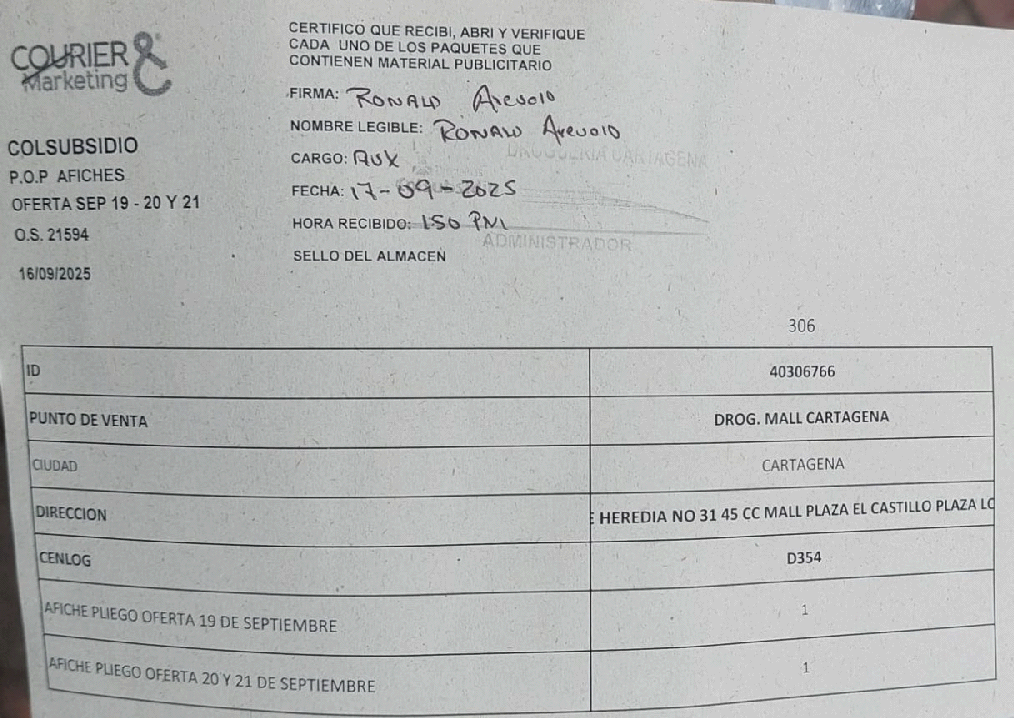 COURIER &
Marketing
COLSUBSIDIO
P.O.P AFICHES
OFERTA SEP 19 - 20 Y 21
O.S. 21594
16/09/2025
CERTIFICO QUE RECIBI, ABRI Y VERIFIQUE
CADA UNO DE LOS PAQUETES QUE
CONTIENEN MATERIAL PUBLICITARIO
FIRMA: RONALD Arevolo
NOMBRE LEGIBLE: RONALD Arevolo
CARGO: AUX
DROGUERIA CARTAGENA
FECHA: 17-09-2025
HORA RECIBIDO: 150 PM
ADMINISTRADOR
SELLO DEL ALMACEN
306
ID 40306766
PUNTO DE VENTA DROG. MALL CARTAGENA
CIUDAD CARTAGENA
DIRECCION E HEREDIA NO 31 45 CC MALL PLAZA EL CASTILLO PLAZA LO
CENLOG D354
AFICHE PLIEGO OFERTA 19 DE SEPTIEMBRE 1
AFICHE PLIEGO OFERTA 20 Y 21 DE SEPTIEMBRE 1